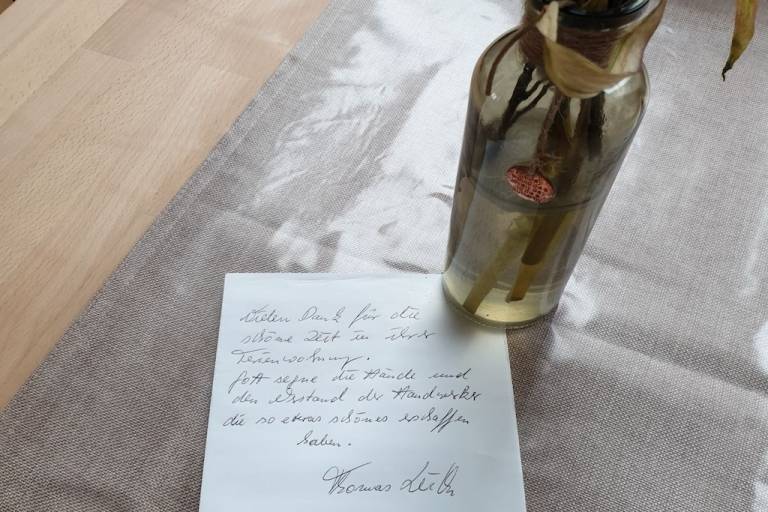 Vielen Dank für die
schöne Zeit in ihrer
Ferienwohnung.
Gott segne die Hände und
den Verstand der Handwerker
die so etwas schönes erschaffen
haben.
Thomas